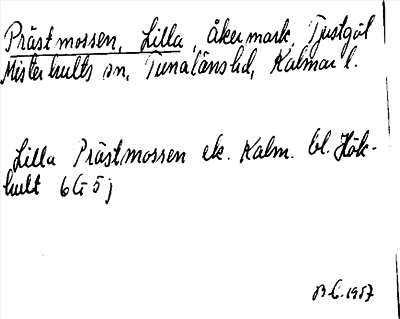 Prästmossen, Lilla, åkermark, Tjustgöl
Misterhults sn, Tunaläns hd, Kalmar l.
Lilla Prästmossen ek. Kalm. bl. Hök-
hult 6G5j
B.C. 1957